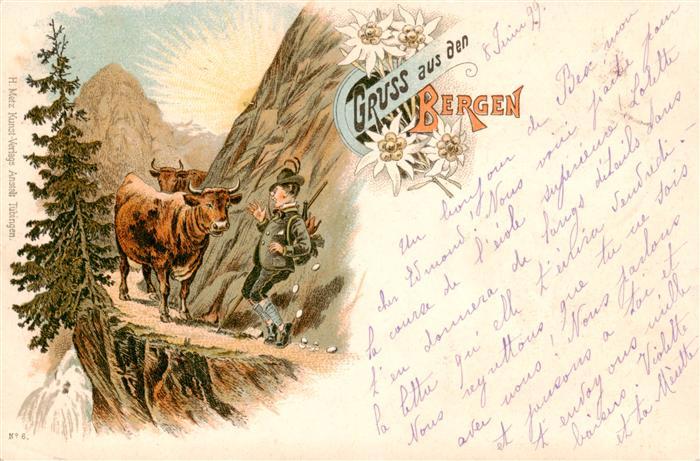 GRUSS aus den
BERGEN
8 Juin 99.
Un bonjour de Bex mon
cher Edmond! Nous voici faite pour
la course de l'école supérieure! Colette
t'en donnera de longs détails dans
la lettre qu'elle t'écrira vendredi.
Nous regrettons que tu ne sois
avec nous! Nous parlons
et pensons à toi et
t'envoyons mille
baisers. Violette
et ta Mèrette
H. Metz Kunst-Verlags Anstalt Tübingen.
No 6.